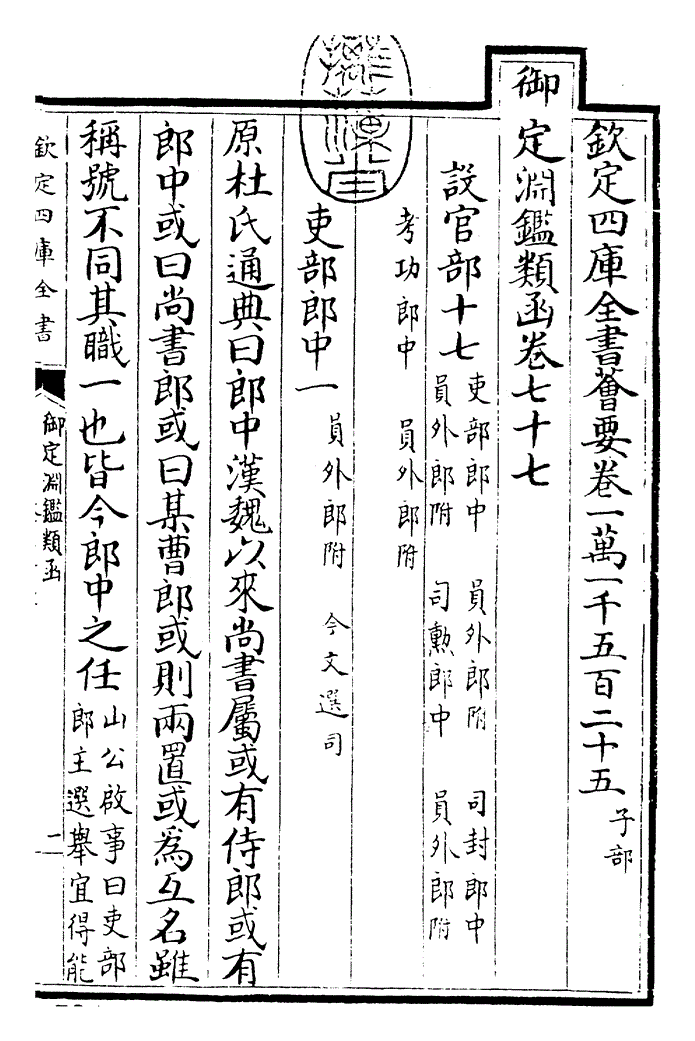 欽定四庫全書薈要卷一萬一千五百二十五 子部
御定淵鑑類函卷七十七
設官部十七 吏部郎中 員外郎附 司封郎中
員外郎附 司勲郎中 員外郎附
考功郎中 員外郎附
吏部郎中一 員外郎附 今文選司
原杜氏通典曰郎中漢魏以來尚書屬或有侍郎或有
郎中或曰尚書郎或曰某曹郎或則兩置或為互名雖
稱號不同其職一也皆今郎中之任 山公啟事曰吏部
郎主選舉宜得能
欽定四庫全書
御定淵鑑類函
一